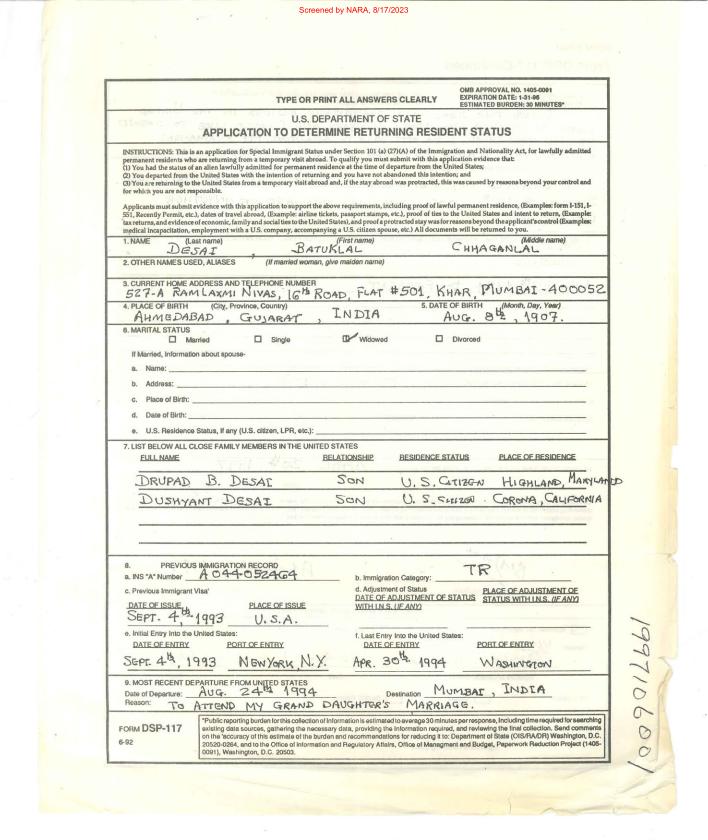 Screened by NARA, 8/17/2023
TYPE OR PRINT ALL ANSWERS CLEARLY
OMB APPROVAL NO. 1405-0091
EXPIRATION DATE: 1-31-96
ESTIMATED BURDEN: 30 MINUTES*
U.S. DEPARTMENT OF STATE
APPLICATION TO DETERMINE RETURNING RESIDENT STATUS
INSTRUCTIONS: This is an application for Special Immigrant Status under Section 101 (a) (27)(A) of the Immigration and Nationality Act, for lawfully admitted
permanent residents who are returning from a temporary visit abroad. To qualify you must submit with this application evidence that:
(1) You had the status of an alien lawfully admitted for permanent residence at the time of departure from the United States;
(2) You departed from the United States with the intention of returning and you have not abandoned this intention; and
(3) You are returning to the United States from a temporary visit abroad and, if the stay abroad was protracted, this was caused by reasons beyond your control and
for which you are not responsible.
Applicants must submit evidence with this application to support the above requirements, including proof of lawful permanent residence, (Examples: form I-151, I-
551, Recently Permit, etc.), dates of travel abroad, (Example: airline tickets, passport stamps, etc.), proof of ties to the United States and intent to return, (Example:
tax returns, and evidence of economic, family and social ties to the United States), and proof a protracted stay was for reasons beyond the applicant's control (Examples:
medical incapacitation, employment with a U.S. company, accompanying a U.S. citizen spouse, etc.) All documents will be returned to you.
1. NAME (Last name) (First name) (Middle name)
DESAI, BATUKLAL CHHAGANLAL
2. OTHER NAMES USED, ALIASES (If married woman, give maiden name)
3. CURRENT HOME ADDRESS AND TELEPHONE NUMBER
527-A RAMLAXMI NIVAS, 16th ROAD, FLAT #501, KHAR, MUMBAI-400052
4. PLACE OF BIRTH (City, Province, Country) 5. DATE OF BIRTH (Month, Day, Year)
AHMEDABAD, GUJARAT, INDIA AUG. 8th, 1907.
6. MARITAL STATUS
Married Single Widowed Divorced
If Married, Information about spouse-
a. Name:
b. Address:
c. Place of Birth:
d. Date of Birth:
e. U.S. Residence Status, if any (U.S. citizen, LPR, etc.):
7. LIST BELOW ALL CLOSE FAMILY MEMBERS IN THE UNITED STATES
FULL NAME RELATIONSHIP RESIDENCE STATUS PLACE OF RESIDENCE
DRUPAD B. DESAI SON U.S. CITIZEN HIGHLAND, MARYLAND
DUSHYANT DESAI SON U.S. CITIZEN CORONA, CALIFORNIA
8. PREVIOUS IMMIGRATION RECORD
a. INS "A" Number A 044052464 b. Immigration Category: TR
c. Previous Immigrant Visa' d. Adjustment of Status
DATE OF ISSUE PLACE OF ISSUE DATE OF ADJUSTMENT OF STATUS WITH I.N.S. (IF ANY) PLACE OF ADJUSTMENT OF STATUS WITH I.N.S. (IF ANY)
SEPT. 4th, 1993 U.S.A.
e. Initial Entry Into the United States: f. Last Entry Into the United States:
DATE OF ENTRY PORT OF ENTRY DATE OF ENTRY PORT OF ENTRY
SEPT. 4th, 1993 NEWYORK, N.Y. APR. 30th 1994 WASHINGTON
9. MOST RECENT DEPARTURE FROM UNITED STATES
Date of Departure: AUG. 24th 1994 Destination MUMBAI, INDIA
Reason: TO ATTEND MY GRAND DAUGHTER'S MARRIAGE.
FORM DSP-117
6-92
*Public reporting burden for this collection of information is estimated to average 30 minutes per response, including time required for searching
existing data sources, gathering the necessary data, providing the information required, and reviewing the final collection. Send comments
on the accuracy of this estimate of the burden and recommendations for reducing it to: Department of State (OIS/RA/DR) Washington, D.C.
20520-0264, and to the Office of Information and Regulatory Affairs, Office of Managment and Budget, Paperwork Reduction Project (1405-
0091), Washington, D.C. 20503.
1997106001